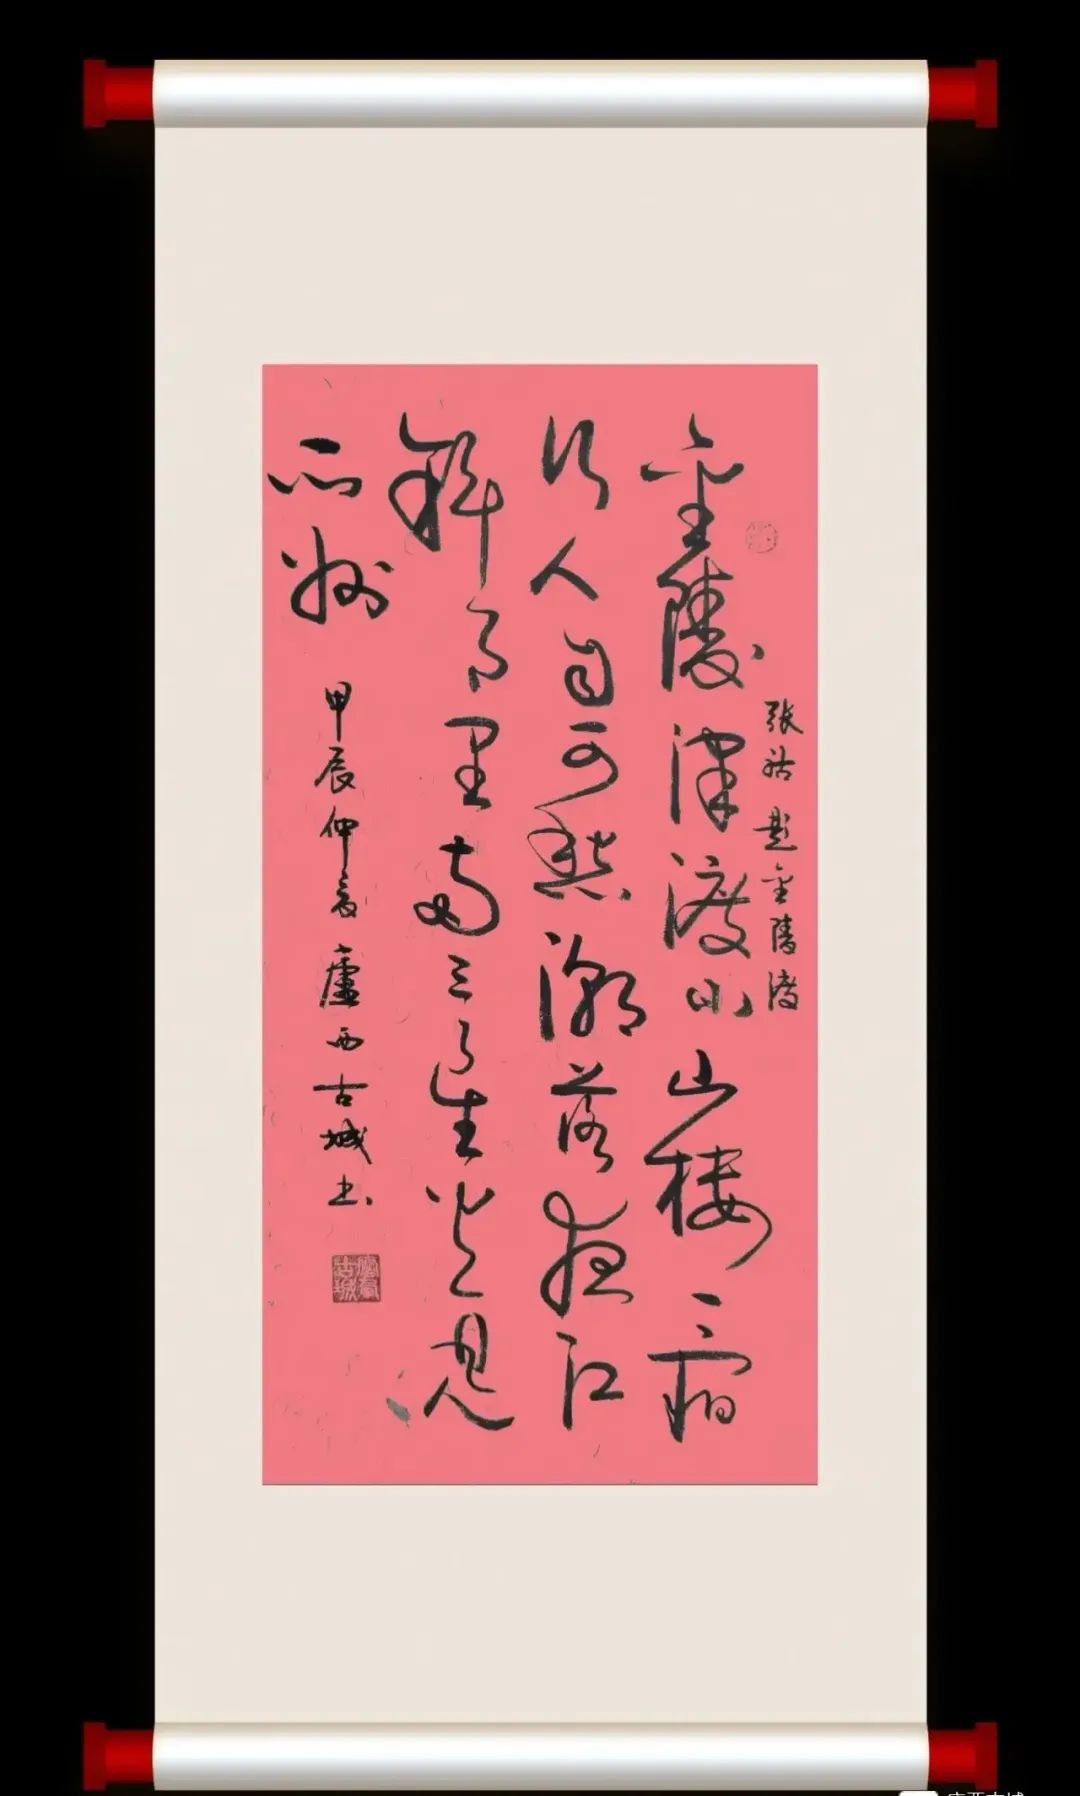 张祜题金陵渡
金陵津渡小山楼一宿
行人自可愁潮落夜江
斜月里两三星火是
瓜州
甲辰仲夏廬西古城书